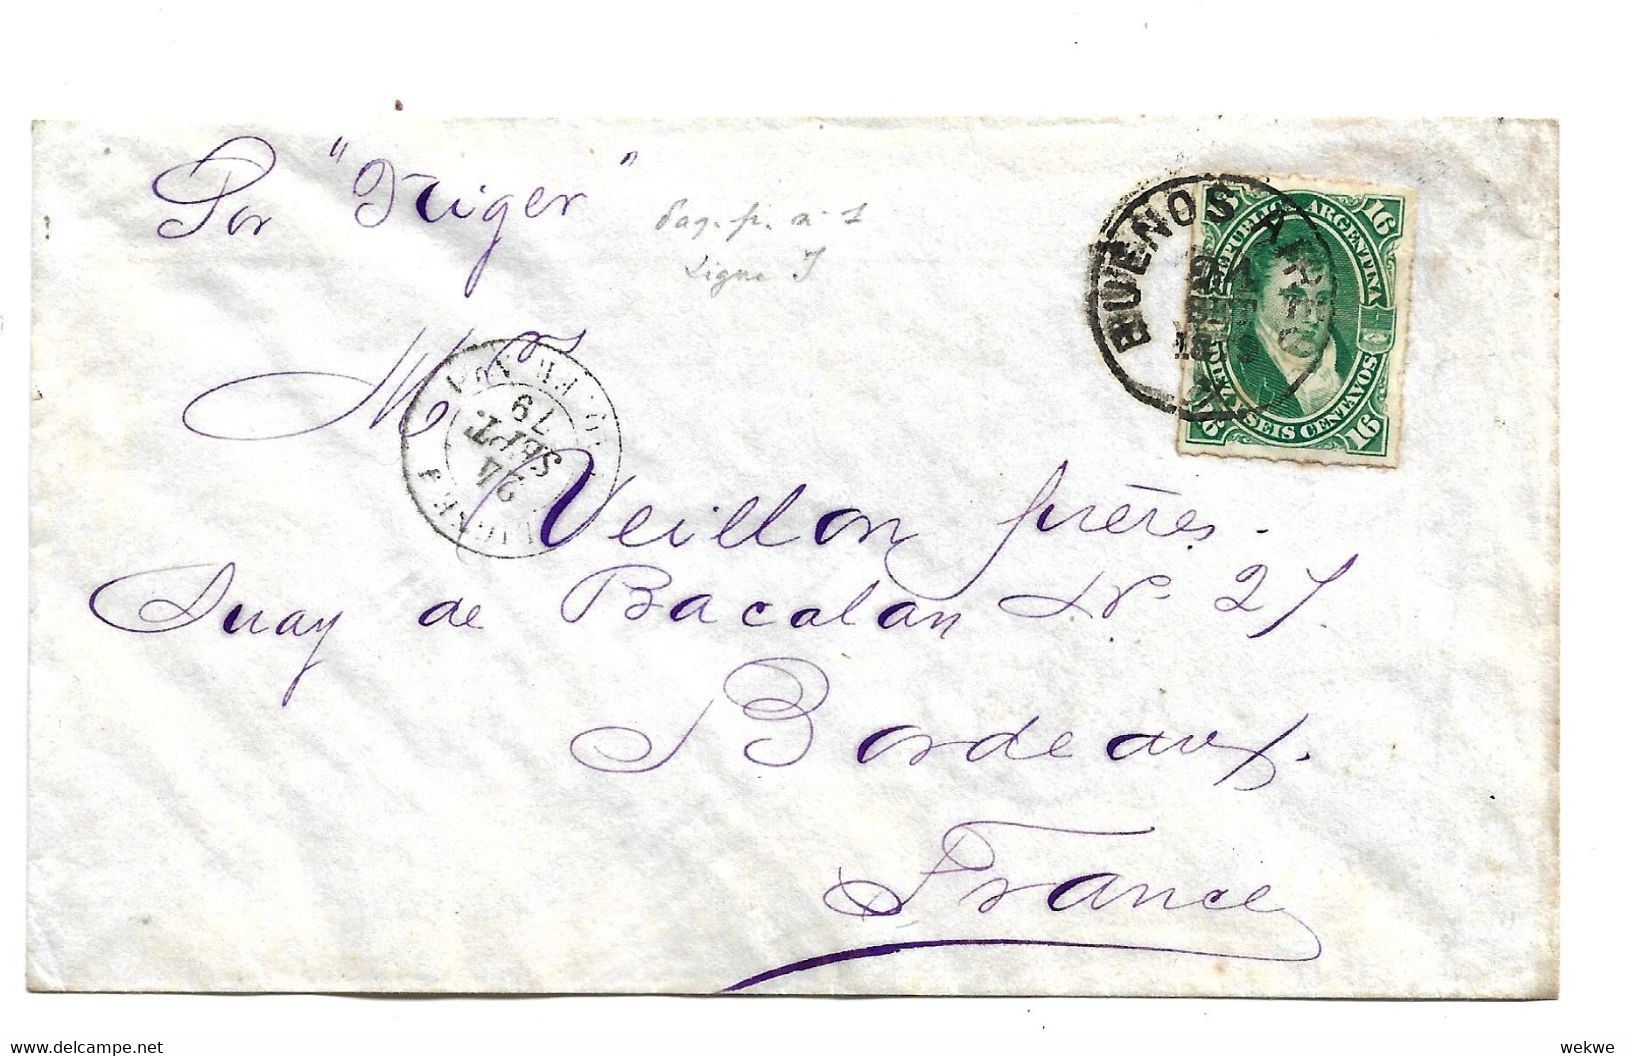 Por "Niger"
Paq. fr. n° 1
Ligne J
BUENOS AIRES
REPUBLICA ARGENTINA
16
16
16
DIEZ Y SEIS CENTAVOS
24
SEPT.
79
Mrs Veillon frères.
Quay de Bacalan No. 27.
Bordeaux.
France
www.delcampe.net
wekwe